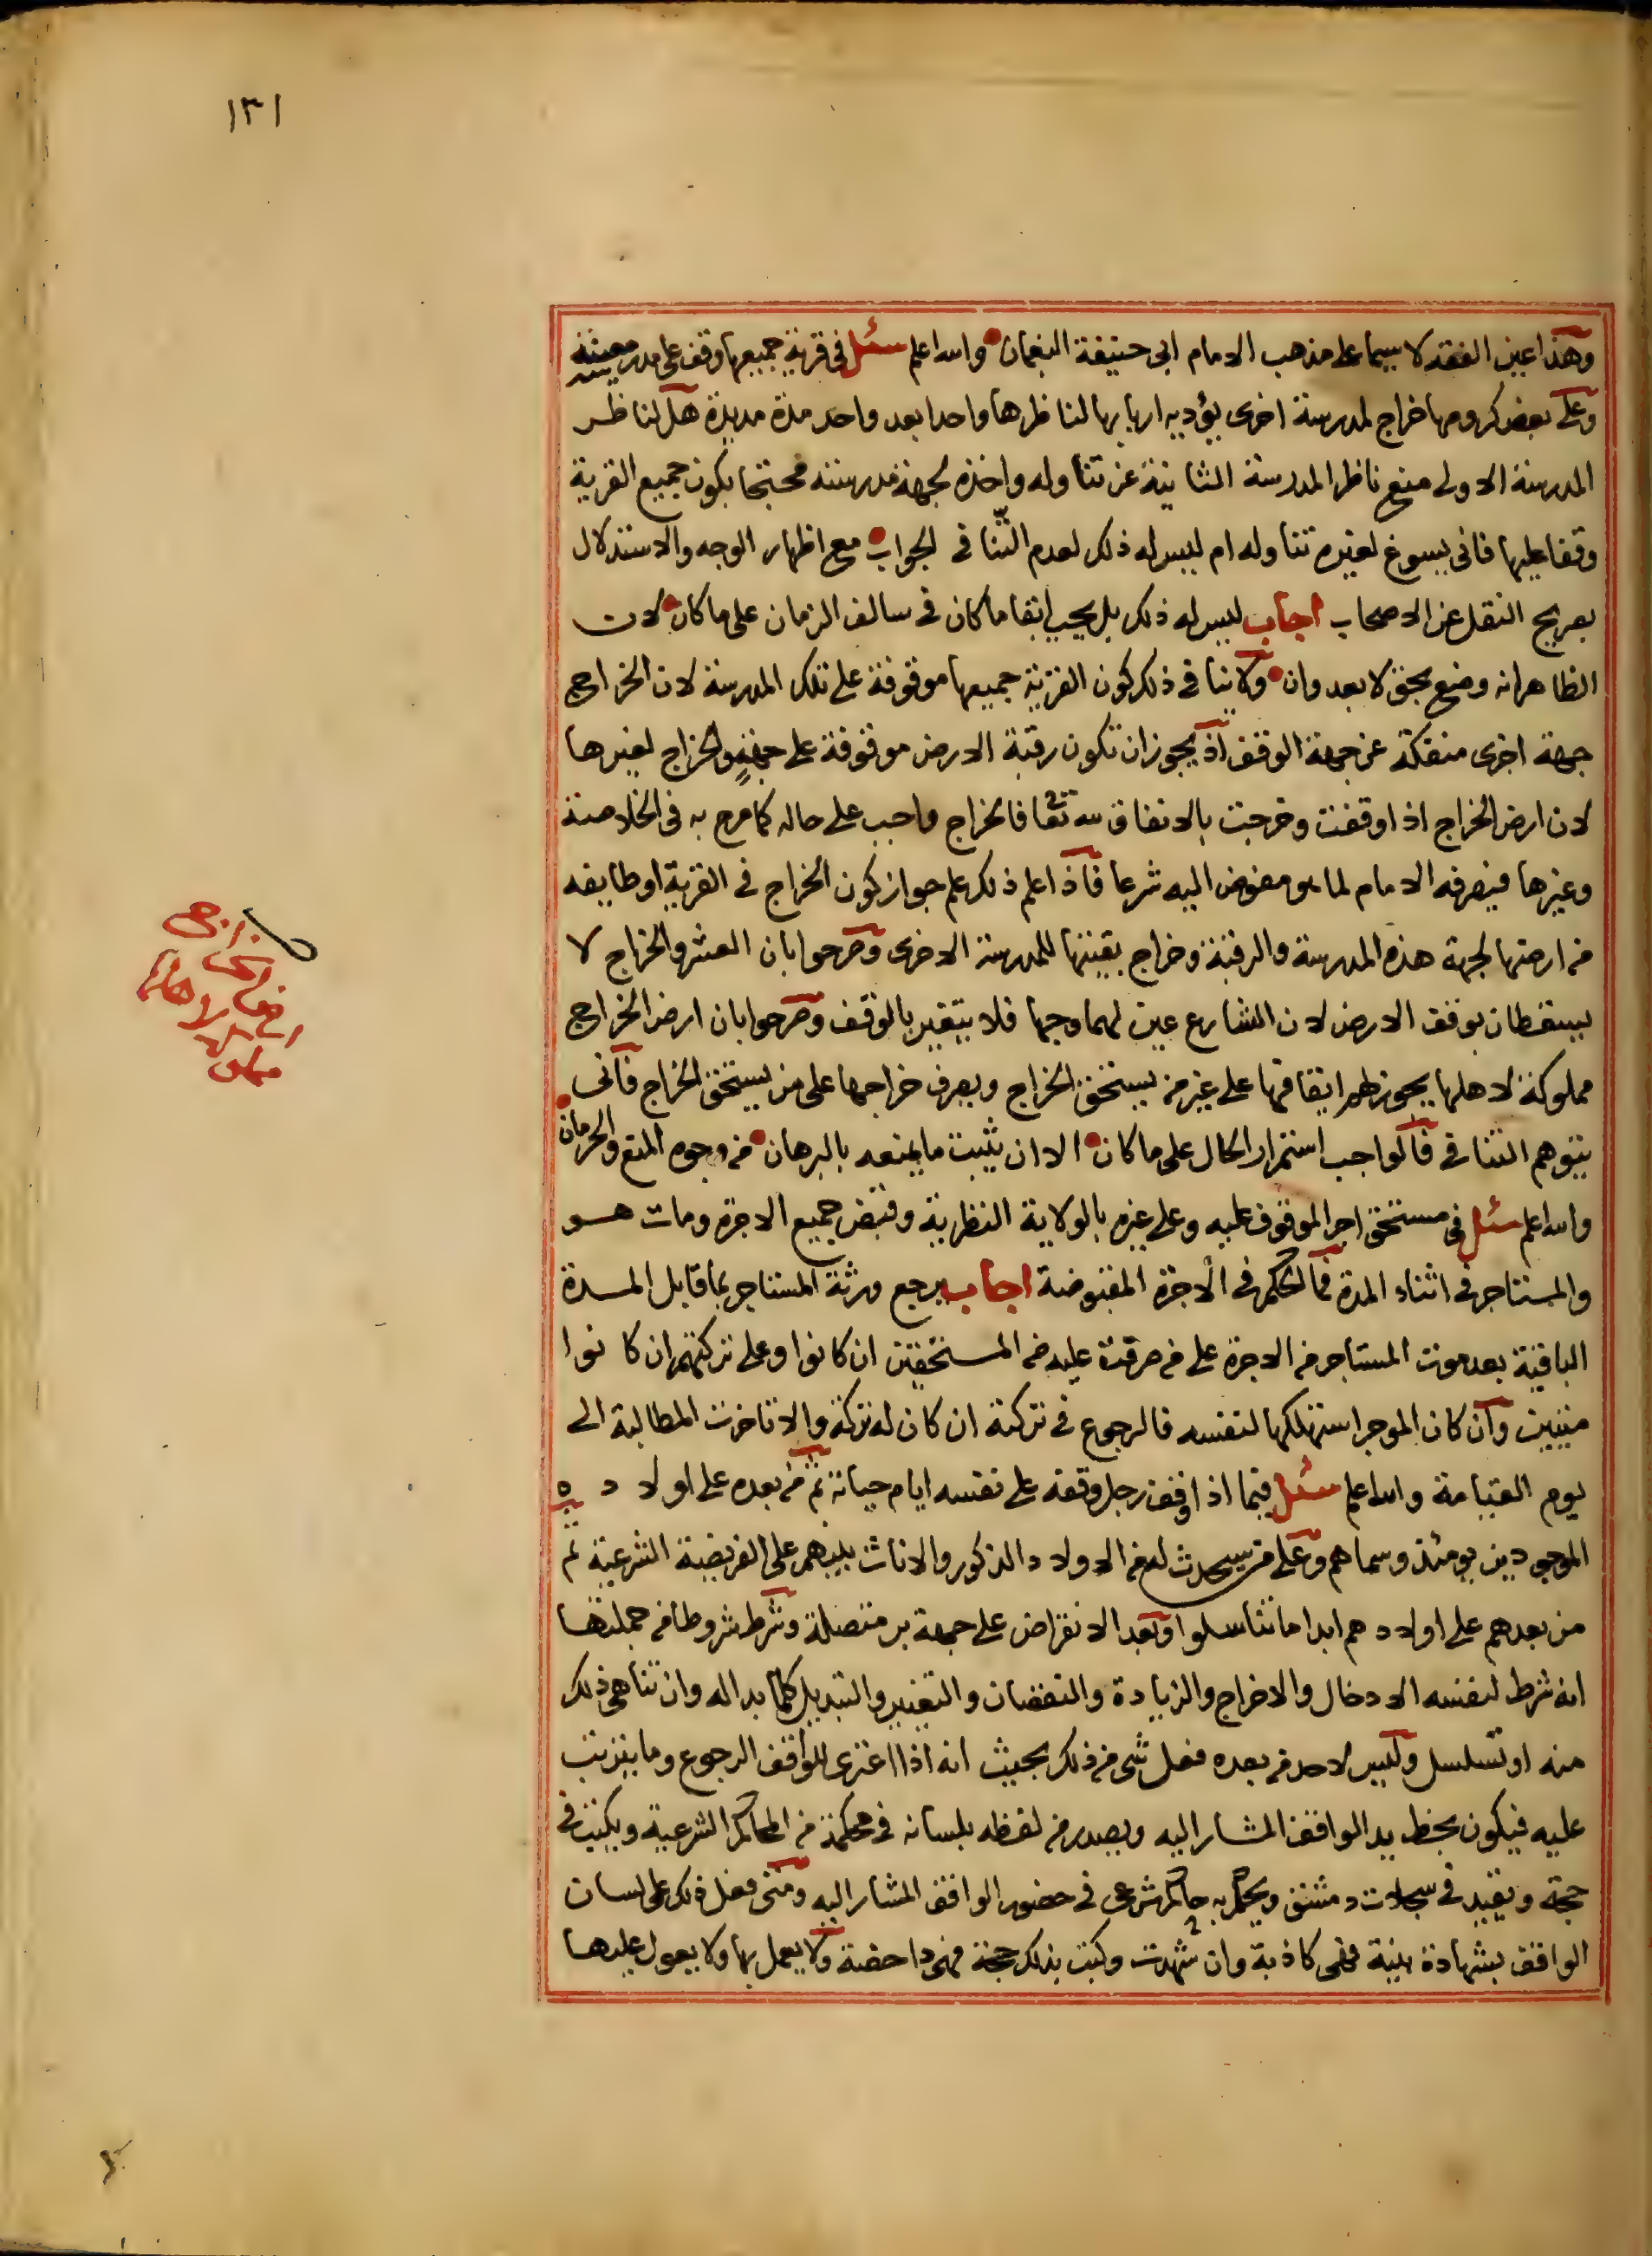 ١٣١
وهذا عين الفقه لا سيما على مذهب الامام ابي حنيفة النعمان والله اعلم سئل في قرية جميعها وقف على مدرسة معينة
وعلى بعض كرومها خراج لمدرسة اخرى يؤديه اربابها لناظرها واحدا بعد واحد مدة مديدة هل لناظر
المدرسة الاولى منع ناظر المدرسة الثانية عن تناوله واخذه لجهة مدرسته محتجا بكون جميع القرية
وقفا عليها فانى يسوغ لغيره تناوله ام ليس له ذلك لعدم التنافي الجواب مع اظهار الوجه والاستدلال
بصريح النقل عن الاصحاب اجاب ليس له ذلك بل يجب ابقا ما كان في سالف الزمان على ما كان لان
الظاهر انه وضع بحق لا بعدوان ولا ينافي ذلك كون القرية جميعها موقوفة على تلك المدرسة لان الخراج
جهة اخرى منفكة عن جهة الوقف اذ يجوز ان تكون رقبة الارض موقوفة على جهة والخراج لغيرها
لان ارض الخراج اذا وقفت وخرجت بالاتفاق لله تعا فالخراج واجب على حاله كما صرح به في الخلاصة
وغيرها فيصرفه الامام لما هو مفوض اليه شرعا فاذا علم ذلك علم جواز كون الخراج في القرية او طايفه
من ارضها لجهة هذه المدرسة والرقبة وخراج بقيتها للمدرسة الاخرى وصرحوا بان العشر والخراج لا
يسقطان بوقف الارض لان الشارع عين لهما وجها فلا يتغير بالوقف وصرحوا بان ارض الخراج
مملوكة لاهلها يجوز لهم ايقافها على غير من يستحق الخراج ويصرف خراجها على من يستحق الخراج فانى
يتوهم التنافي فالواجب استمرار الحال على ما كان الا ان يثبت ما يمنعه بالبرهان من وجوه المنع والحرمان
والله اعلم سئل في مستحق اجر الموقوف عليه وعلى غيره بالولاية النظرية وقبض جميع الاجرة ومات هو
والمستاجر في اثناء المدة فما الحكم في الاجرة المقبوضة اجاب يرجع ورثة المستاجر بما قابل المدة
الباقية بعد موت المستاجر من الاجرة على من صرفت عليه من المستحقين ان كانوا وعلى تركتهم ان كانوا
ميتين وان كان الموجر استهلكها لنفسه فالرجوع في تركته ان كان له تركة والا تاخرت المطالبة الى
يوم القيامة والله اعلم سئل فيما اذا وقف رجل وقفه على نفسه ايام حياته ثم من بعده على اولاده
الموجودين يومئذ وسماهم وعلى من سيحدث له من الاولاد الذكور والاناث بينهم على الفريضة الشرعية ثم
من بعدهم على اولادهم ابدا ما تناسلوا وبعد الانقراض على جهة بر متصلة وشرط شروطا من جملتها
انه شرط لنفسه الادخال والاخراج والزيادة والنقصان والتغيير والتبديل كلما بدا له وان تناهى ذلك
منه او تسلسل وليس لاحد من بعده فعل شي من ذلك بحيث انه اذا اعترى للواقف الرجوع وما يترتب
عليه فيكون بخط يد الواقف المشار اليه ويصدر من لفظه بلسانه في محكمة من المحاكم الشرعية ويكتب في
حجة ويقيد في سجلات دمشق ويحكم به حاكم شرعي في حضور الواقف المشار اليه ومتى فعل ذلك على لسان
الواقف بشهادة بينة فهي كاذبة وان شهدت وكتب بذلك حجة فهي داحضة ولا يعمل بها ولا يعول عليها
ارض الخراج
مملوكة لاهلها